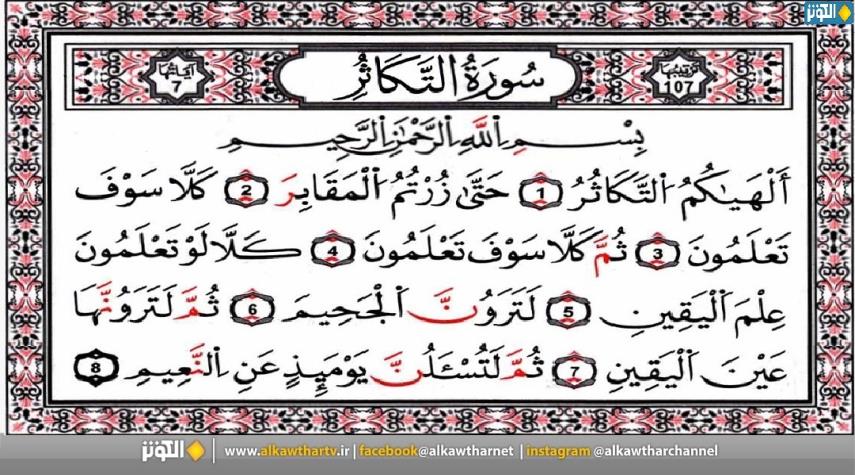 الكوثر
ترتيبها 107
سُورَةُ التَّكَاثُرِ
آياتها 7
بِسْمِ اللَّهِ الرَّحْمَٰنِ الرَّحِيمِ
أَلْهَيٰكُمُ التَّكَاثُرُ ۝1 حَتَّىٰ زُرْتُمُ الْمَقَابِرَ ۝2 كَلَّا سَوْفَ
تَعْلَمُونَ ۝3 ثُمَّ كَلَّا سَوْفَ تَعْلَمُونَ ۝4 كَلَّا لَوْ تَعْلَمُونَ
عِلْمَ الْيَقِينِ ۝5 لَتَرَوُنَّ الْجَحِيمَ ۝6 ثُمَّ لَتَرَوُنَّهَا
عَيْنَ الْيَقِينِ ۝7 ثُمَّ لَتُسْـَٔلُنَّ يَوْمَئِذٍ عَنِ النَّعِيمِ ۝8
الكوثر | www.alkawthartv.ir | facebook@alkawtharnet | instagram @alkawtharchannel